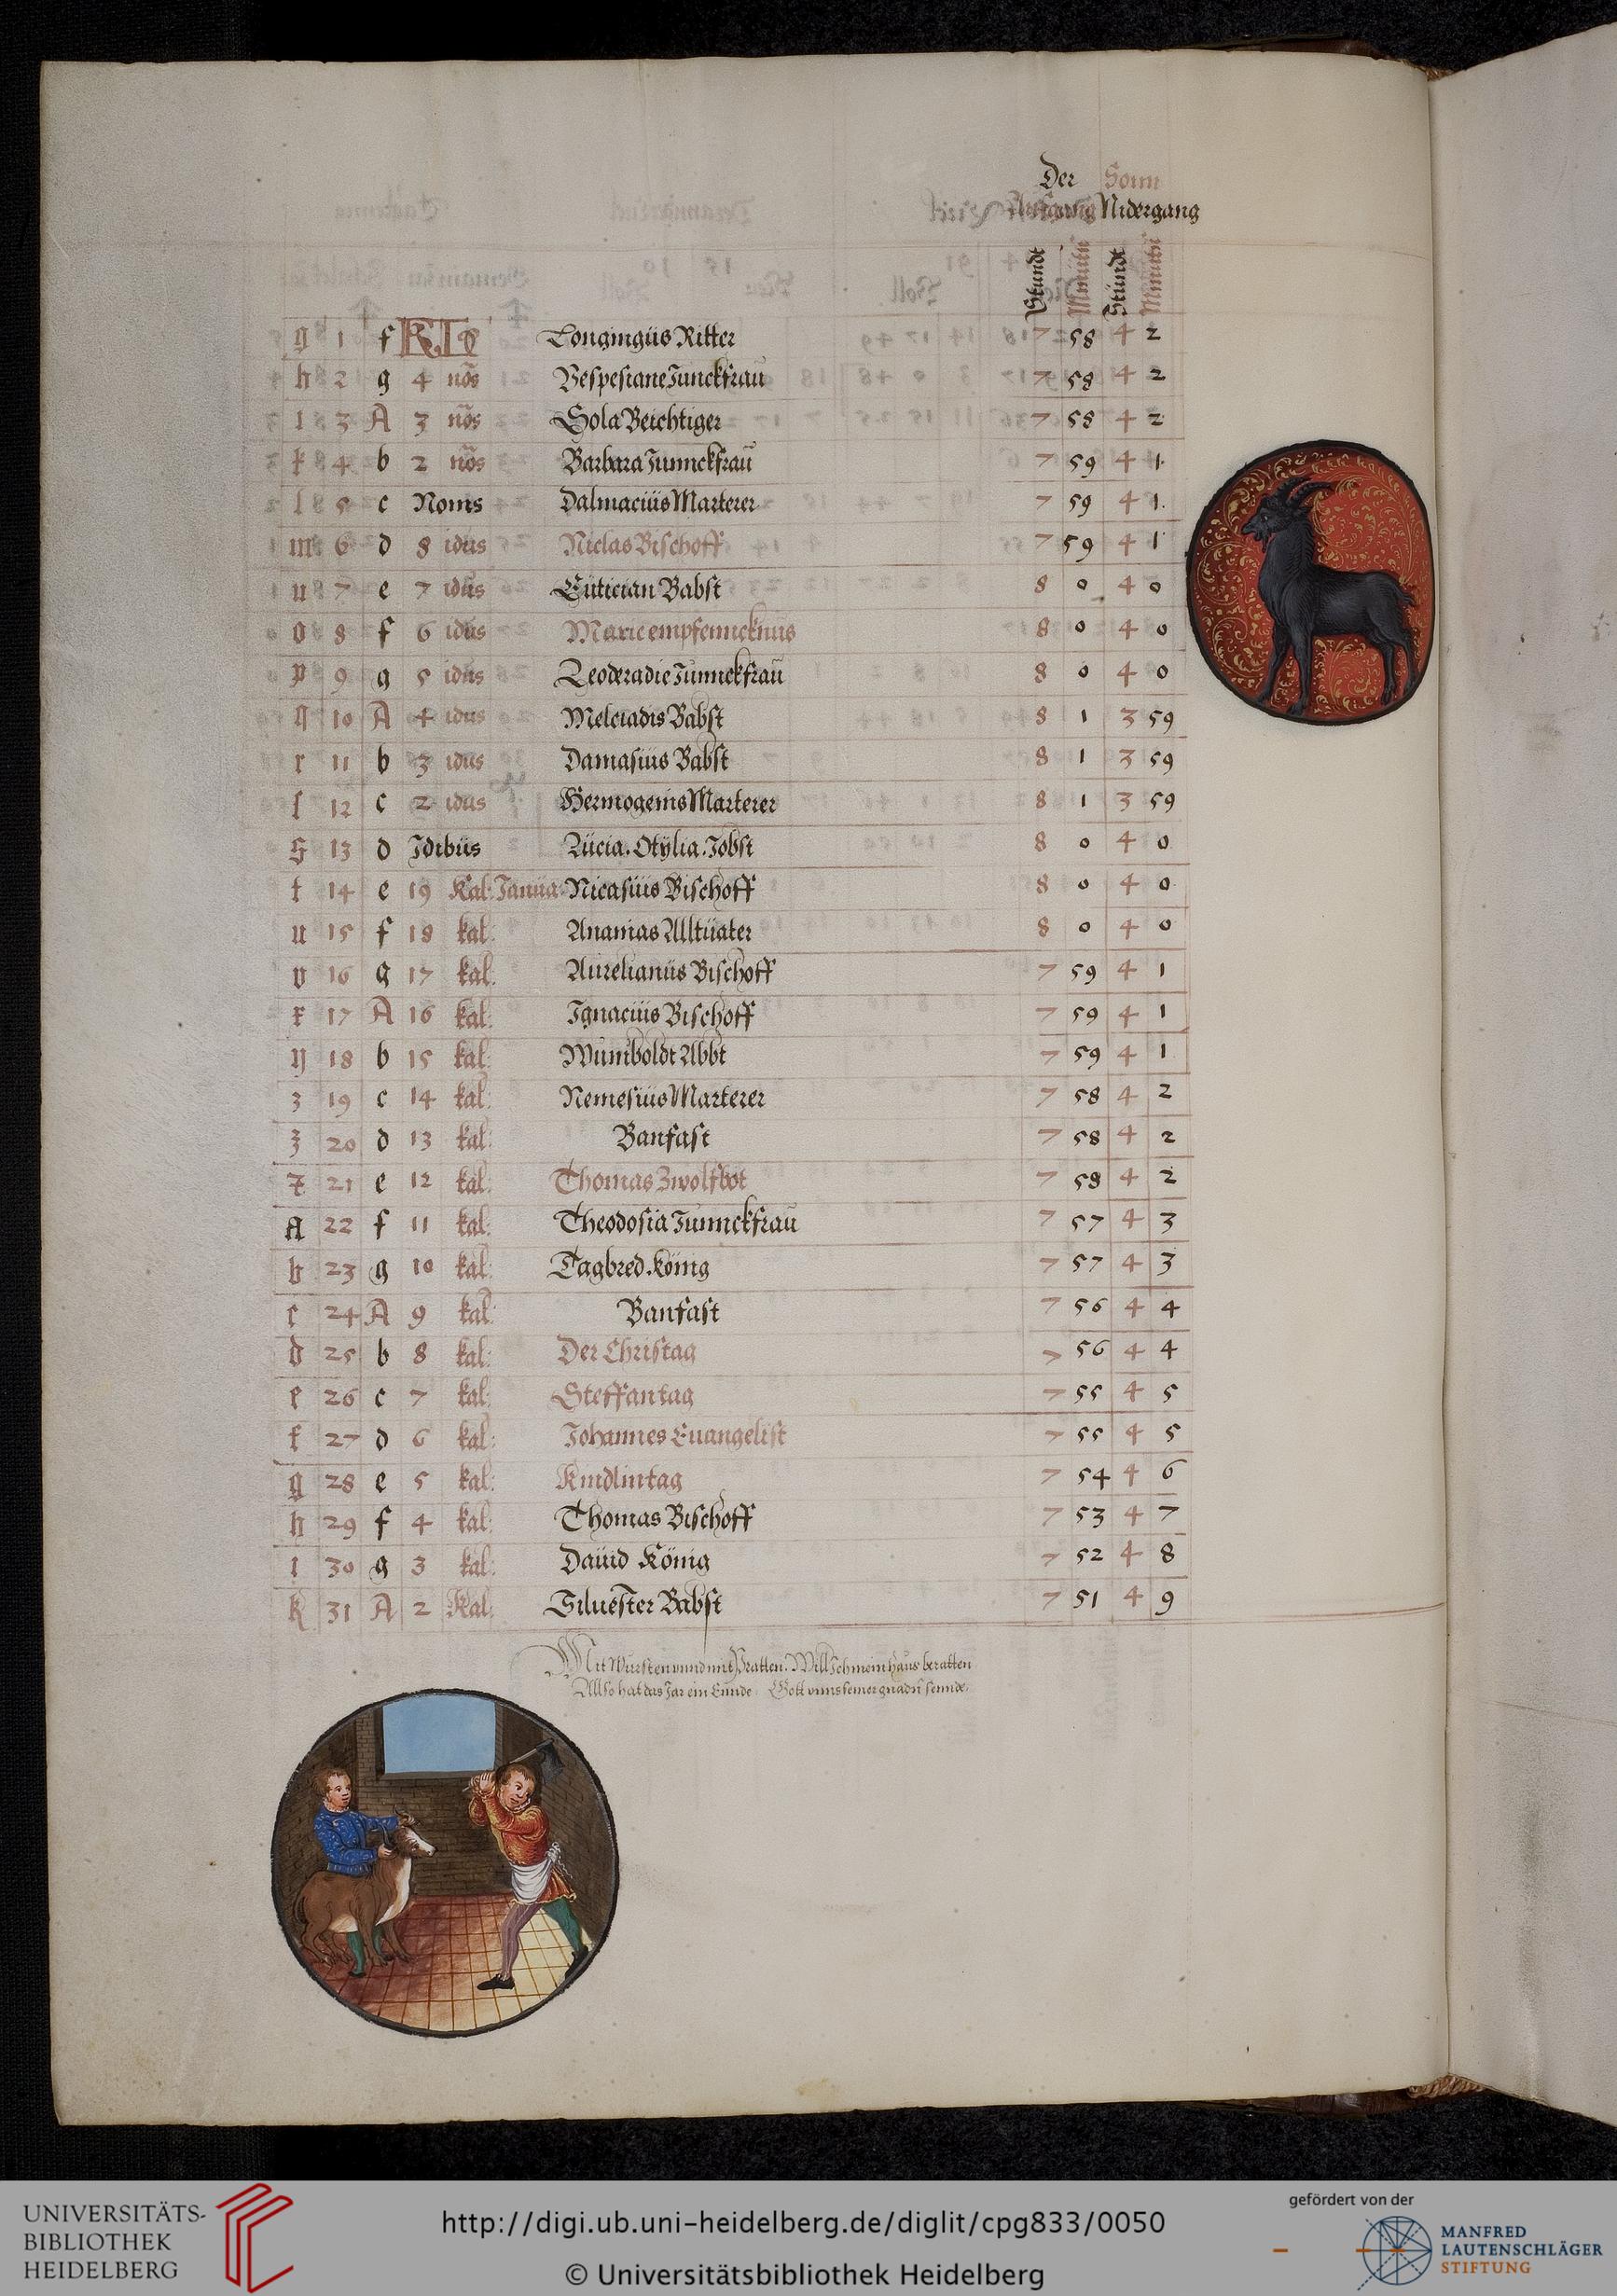 Der Sonn
Aufgang Nidergang
Stundt Minutn Stundt Minutn
g 1 f KL Longingüs Ritter 7 58 4 2
h 2 g 4 nõs Vespesiane Junckfraü 7 58 4 2
i 3 A 3 nõs Sola Beichtiger 7 58 4 2
k 4 b 2 nõs Barbara Junnckfraü 7 59 4 1
l 5 c Nonis Dalmaciüs Marterer 7 59 4 1
m 6 d 8 idus Niclas Bischoff 7 59 4 1
n 7 e 7 idus Eütician Babst 8 0 4 0
o 8 f 6 idus Marie empfenncknus 8 0 4 0
p 9 g 5 idus Leoderadie Junnckfraü 8 0 4 0
q 10 A 4 idus Melciadis Babst 8 1 3 59
r 11 b 3 idus Damasiüs Babst 8 1 3 59
ſ 12 c 2 idus Hermogenis Marterer 8 1 3 59
s 13 d Jdibüs Lücia. Otÿlia. Jobst 8 0 4 0
t 14 e 19 Kal: Janüa: Nicasiüs Bischoff 8 0 4 0
u 15 f 18 kal: Ananias Alltüater 8 0 4 0
v 16 g 17 kal: Aürelianüs Bischoff 7 59 4 1
x 17 A 16 kal: Jgnaciüs Bischoff 7 59 4 1
y 18 b 15 kal: Wüniboldt Abbt 7 59 4 1
z 19 c 14 kal: Nemesiüs Marterer 7 58 4 2
20 d 13 kal: Banfast 7 58 4 2
21 e 12 kal: Thomas Zwolfbot 7 58 4 2
A 22 f 11 kal: Theodosia Junnckfraü 7 57 4 3
b 23 g 10 kal: Tagbred König 7 57 4 3
c 24 A 9 kal: Banfast 7 56 4 4
d 25 b 8 kal: Der Christag 7 56 4 4
e 26 c 7 kal: Steffan tag 7 55 4 5
f 27 d 6 kal: Johannes Euangelist 7 55 4 5
g 28 e 5 kal: Kindlintag 7 54 4 6
h 29 f 4 kal: Thomas Bischoff 7 53 4 7
i 30 g 3 kal: Daüid König 7 52 4 8
k 31 A 2 Kal: Siluester Babst 7 51 4 9
Mit Würsten vnnd mit Bratten. Will Jch mein haus beratten
Allso hat das Jar ein Ennde. Gott vnns seiner gnadn sennde.
UNIVERSITÄTS-
BIBLIOTHEK
HEIDELBERG
http://digi.ub.uni-heidelberg.de/diglit/cpg833/0050
© Universitätsbibliothek Heidelberg
gefördert von der
MANFRED
LAUTENSCHLÄGER
STIFTUNG